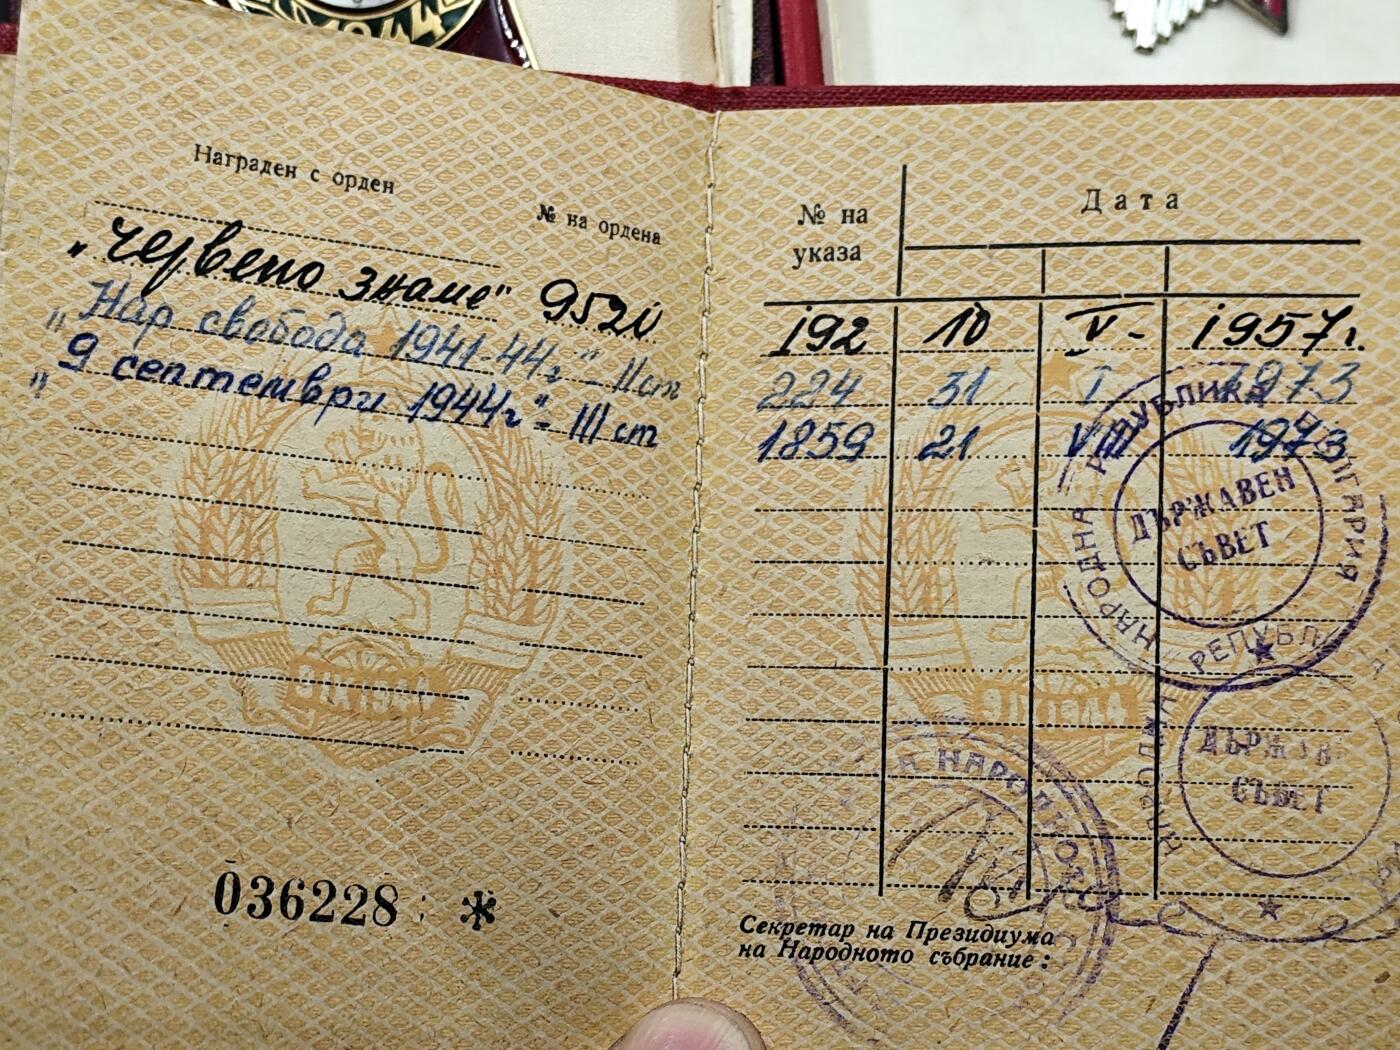 1944
Награден с орден
№ на ордена
„Червено знаме" 9520
„Нар свобода 1941-44г" - II ст
„9 септември 1944г" - III ст
036228 *
№ на указа
Дата
192 10 V - 1957г.
224 31 I 1973
1859 21 VIII 1973
НАРОДНА РЕПУБЛИКА БЪЛГАРИЯ
ДЪРЖАВЕН
СЪВЕТ
РЕПУБЛ
СЪВЕТ
НА НАРОДНО
Секретар на Президиума
на Народното събрание: